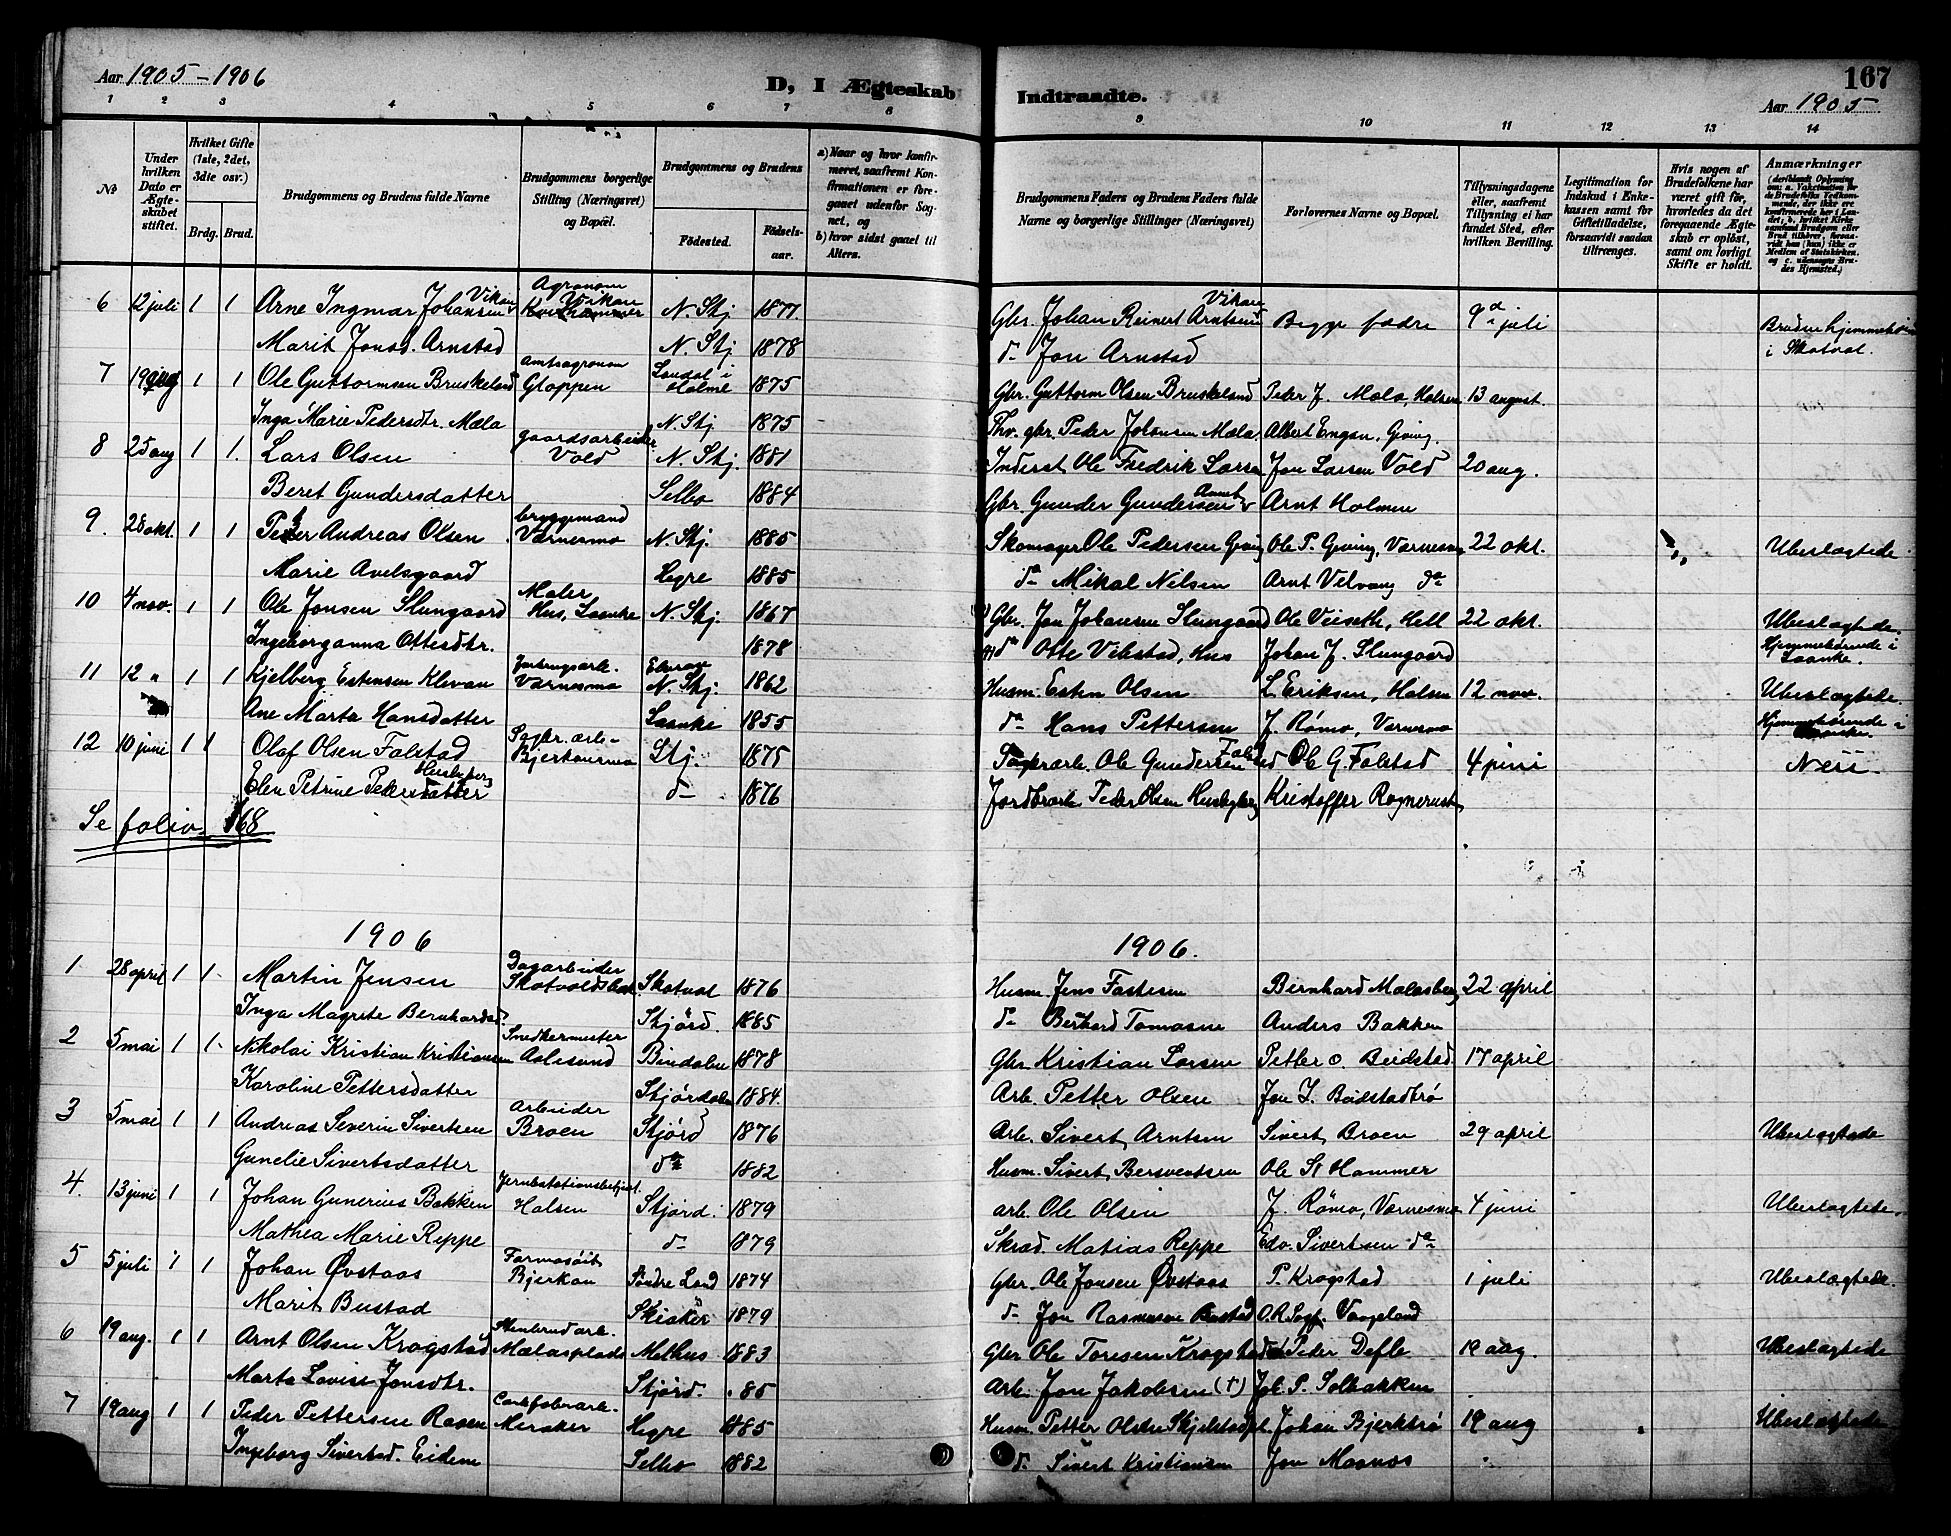 Aar 1905-1906
D, I Ægteskab
Indtraadte.
167
Aar 1905
1 2 3 4 5 6 7 8
9 10 11 12 13 14
No
Under hvilken Dato er Ægteskabet stiftet.
Hvilket Gifte (1ste, 2det, 3die osv.)
Brdg. Brud.
Brudgommens og Brudens fulde Navne
Brudgommens borgerlige Stilling (Næringsvei) og Bopæl.
Brudgommens og Brudens
Födested.
Födselsaar.
a) Naar og hvor konfirmeret, saafremt Konfirmationen er foregaaet udenfor Sognet, og
b) hvor sidst gaaet til Alters.
Brudgommens Faders og Brudens Faders fulde Navne og borgerlige Stillinger (Næringsvei)
Forlovernes Navne og Bopæl.
Tillysningsdagene eller, saafremt Tillysning ei har fundet Sted, efter hvilken Bevilling.
Legitimation for Indskud i Enkekassen samt for Giftetilladelse, forsaavidt saadan tiltrænges.
Hvis nogen af Brudefolkene har været gift før, hvorledes da det foregaaende Ægteskab er oplöst, samt om lovligt Skifte er holdt.
Anmærkninger
6 12 juli 1 1 Arne Ingmar Johansen Vikan Agronom Vikan N. Stj 1877 Gbr. Johan Reinert Arntsen Vikan Begge fædre 9 juli Bruden hjemmehör. i Skatval.
Marit Jonsd. Arnstad N. Stj 1878 do Jon Arnstad
7 19 aug 1 1 Ole Guttormsen Bruskeland Amtsagronom Gloppen Laudal i Holme 1875 Gbr. Guttorm Olsen Bruskeland Peder J. Mæla, Halsen 13 august.
Inga Marie Pedersdtr. Mæla N. Stj 1875 Fhv. gbr. Peder Johansen Mæla Albert Engan, Geving.
8 25 aug 1 1. Lars Olsen gaardsarbeider Vold N. Stj. 1881 Inderst Ole Fredrik Larsen Jon Larsen Vold 20 aug.
Beret Gundersdatter Selbo 1884 Gbr Gunder Gundersen Arnt Holmen
9. 28 okt. 1 1 Peder Andreas Olsen bryggemand Værnesmo N. Stj. 1885 Skomager Ole Pedersen Geving Ole P. Geving, Værnesmo 22 okt. Ubeslægtede.
Marie Avelsgaard Hegre 1885 do Mikal Nilsen Arnt Velvang do
10 4 nov. 1 1 Ole Jonsen Slungaard Maler Hus, Laanke N. Stj. 1867 Gbr. Jon Johansen Slungaard Ole Veiseth, Hell 22 okt. Ubeslægtede.
Ingeborganna Ottesdtr. 1878 do Otte Vikestad, Hus Johan J. Slungaard Hjemmehörende i Laanke.
11 12 " 1 1 Kjelberg Estensen Klevan Værnesmo N. Stj. 1862 Husm. Esten Olsen L. Eriksen, Halsen 12 nov. Ubeslægtede.
Ane Marta Hansdatter Laanke 1855 do Hans Pettersen J. Rømo, Værnesmo Hjemmehörende i
12 10 juni 1 1 Olaf Olsen Falstad Sagbr. arb. Bjerkanmo Stj. 1875 Ole Gundersen Falstad Ole G. Falstad 4 juni Nei.
Elen Petrine Pedersdatter Husbyberg do 1876 Jordbrarb Peder Olsen Husbyberg Kristoffer Rognerust
Se folio 168
1906
1906.
1. 28 april 1 1. Martin Jensen Dagarbeider Skatval 1876 Husm. Jens Fastesen Bernhard Malasberg 22 april
Inga Magrete Bernhardsd. Stjörd. 1885 do Bernhard Tomasen Anders Bakken
2 5 mai 1 1. Nikolai Kristian Kristiansen Snedkermester Aalesund Bindalen 1878 Gbr Kristian Larsen Petter O. Beidstad 17 april
Karoline Pettersdatter Stjørdalen 1884. Arb. Petter Olsen Jon I. Beidstadbrø
3 5 mai 1 1 Andreas Severin Sivertsen arbeider Broen Stjörd 1876 Arb. Sivert Arntsen Sivert Broen 29 april Ubeslægtede
Gunelie Sivertsdatter do 1882 Husm. Sivert Bersventsen Ole St Hammer
4. 13 juni 1 1 Johan Gunerius Bakken Jernbstationsbetjent. Halsen Stjörd. 1879 arb. Ole Olsen J. Rømo, Værnesmo 4 juni Ubeslægtede.
Mathea Marie Reppe do 1879 Skræd. Matias Reppe Edv. Sivertsen do
5 5 juli 1 1 Johan Øvstaas Farmasöit Bjerkan Søndre Land 1874 Gbr. Ole Jonsen Øvstaas P. Krogstad 1 juli Ubeslægtede.
Marit Bustad Skiaker 1879 do Jon Rasmusen Bustad
6 19 aug. 1 1 Arnt Olsen Krogstad Stenbrudarb. Mælasplads Melhus 1883 Gbr Ole Toresen Krogstad Peder Defle 19 aug. Ubeslægtede
Marta Lovise Jonsdtr. Stjörd. 85 Arb. Jon Jakobsen (†) Joh. P. Solbakken
7 19 aug 1 1 Peder Pettersen Raaen Meraker Hegre 1885 Husm. Petter Olsen Skjelstadpl. Johan Bjerkbrø 19 aug Ubeslægtede
Ingeborg Sivertsd. Eidem Selbo 1882 do Sivert Kristiansen Jon Masnes